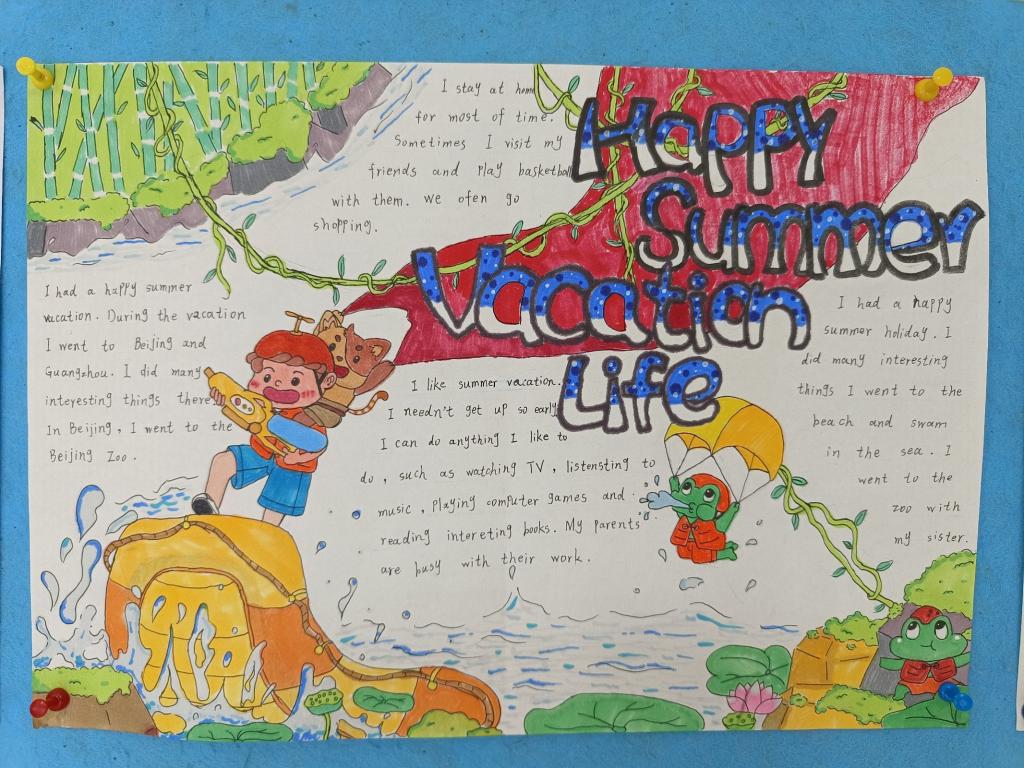 Happy
Summer
Vacation
Life
I stay at home
for most of time.
Sometimes I visit my
friends and play basketball
with them. we ofen go
shopping.
I had a happy summer
vacation. During the vacation
I went to Beijing and
Guangzhou. I did many
interesting things there
In Beijing, I went to the
Beijing Zoo.
I like summer vacation.
I needn't get up so early
I can do anything I like to
do, such as watching TV, listensting to
music, playing computer games and
reading intereting books. My parents
are busy with their work.
I had a happy
summer holiday. I
did many interesting
things I went to the
beach and swam
in the sea. I
went to the
zoo with
my sister.